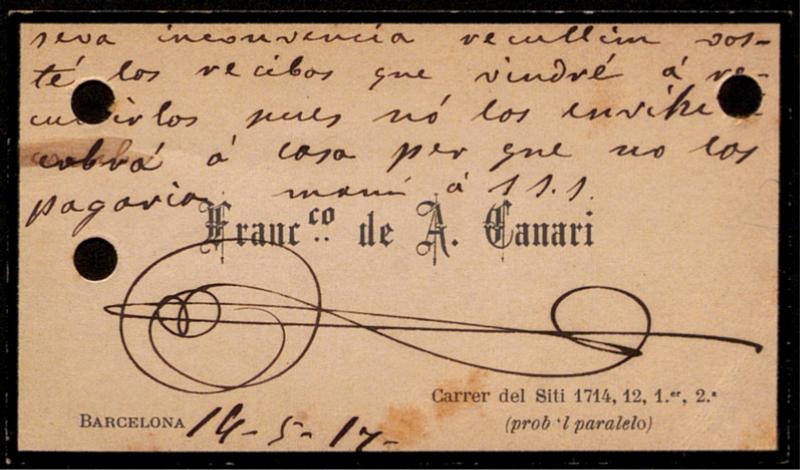 seva inconvencia recullim vos-
té los recibos que vindré á re-
cullirlos pues nó los envihe á
cobrá á casa per que no los
pagaria maní á S S. S.
Franc.co de A. Canari
Carrer del Siti 1714, 12, 1.er, 2.ª
BARCELONA 14-5-17-
(prob 'l paralelo)